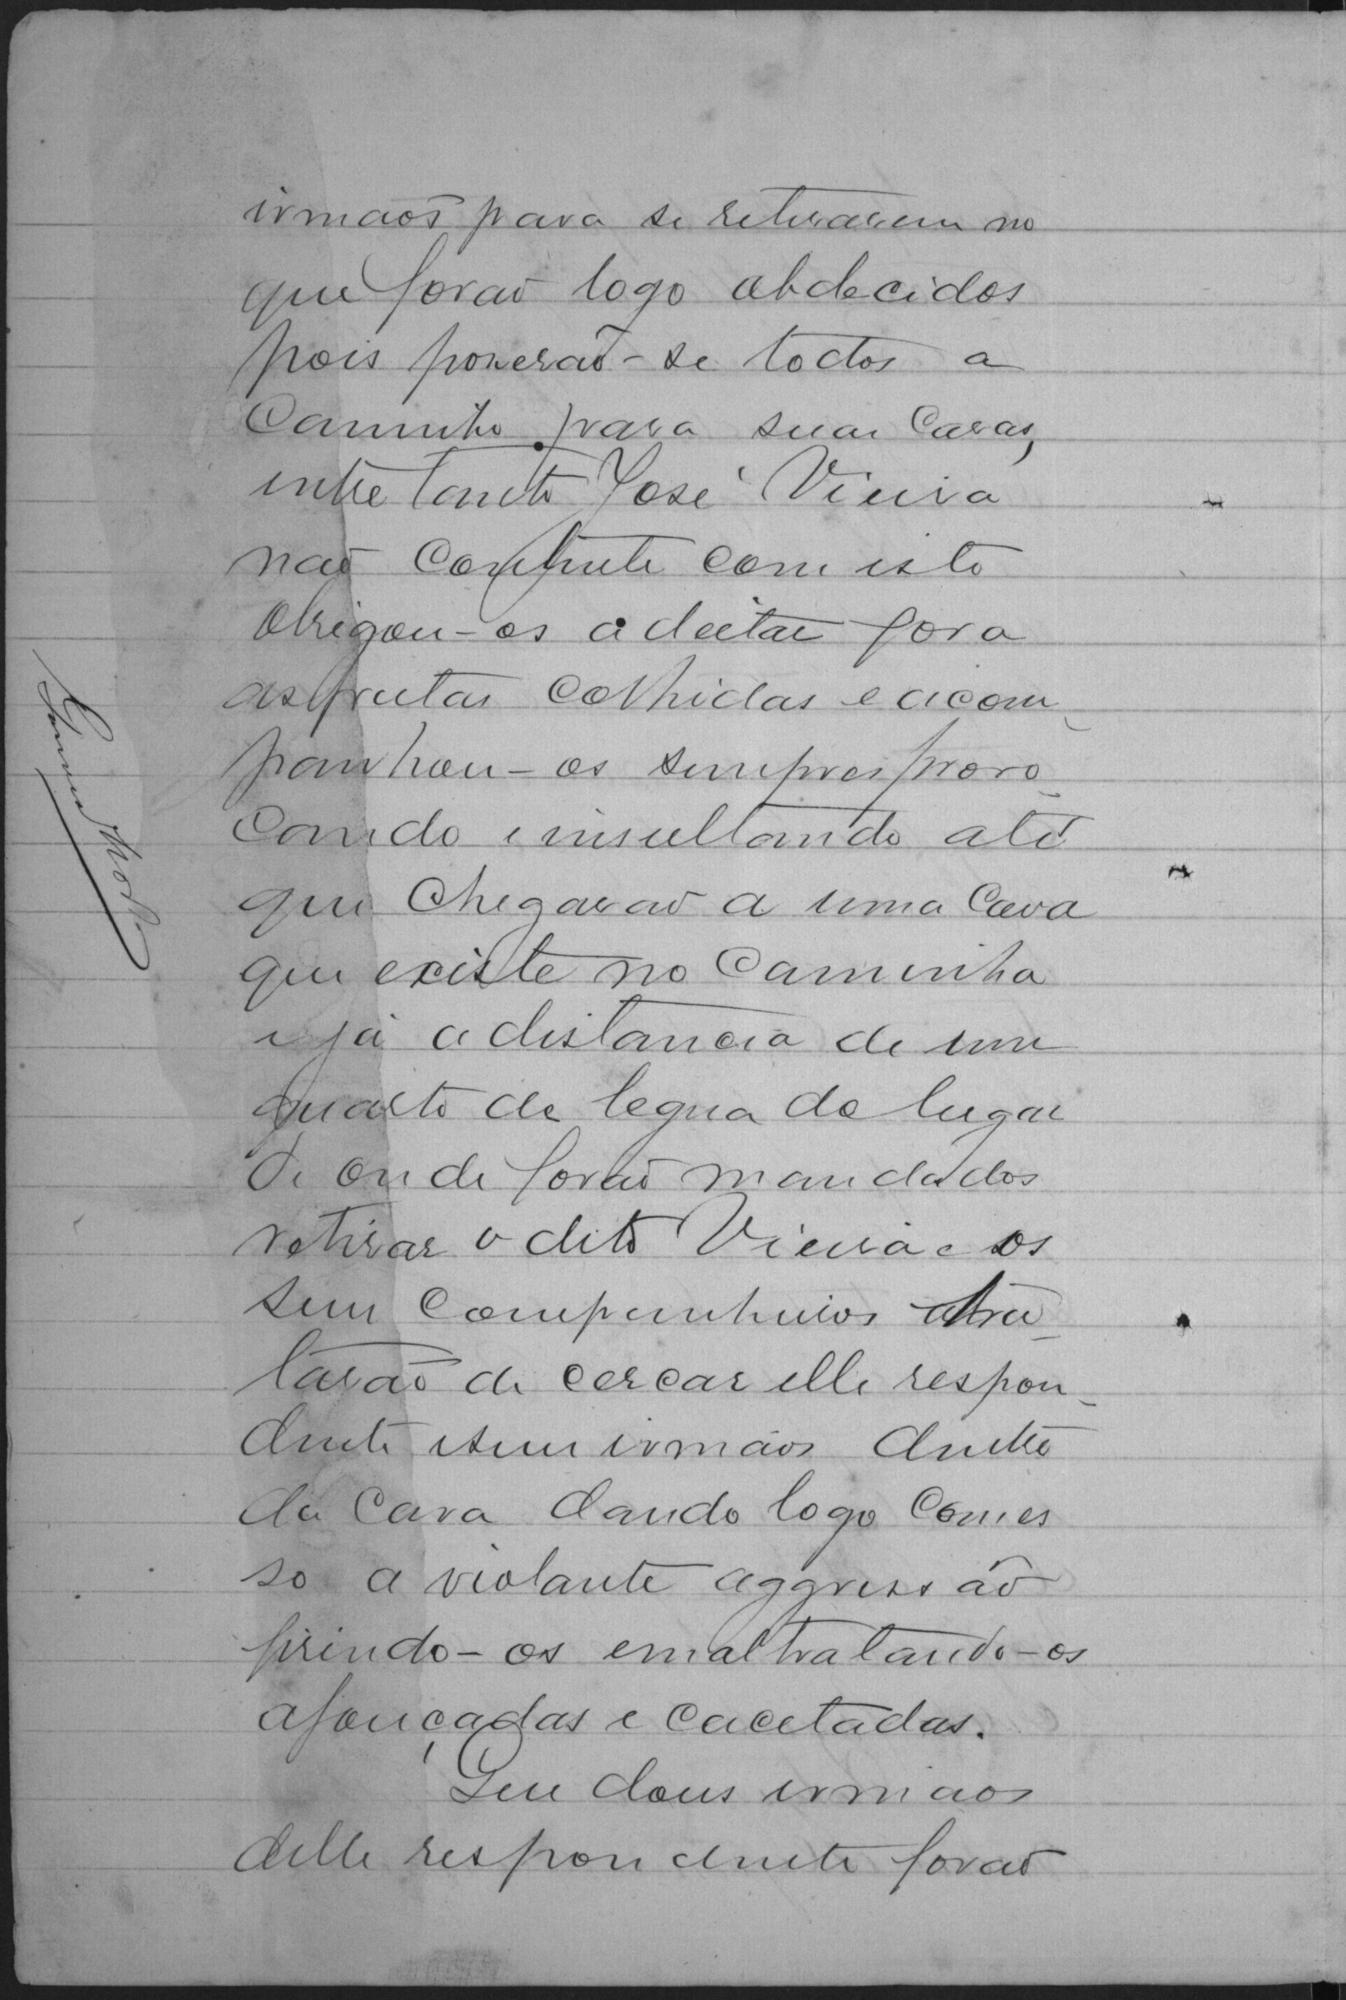 irmaõs para se retirarem no
que foraõ logo obdecidos
pois poseraõ-se todos a
Caminho para suas Casas,
entretanto José Vieira
naõ Contente com isto
Obrigou-os a deitar fora
as frutas Colhidas e acom-
panhou-os sempre provo-
cando e insultando até
que Chegaraõ a uma Cava
que existe no Caminho
e já a distancia de um
quarto de legua do lugar
de onde foraõ mandados
retirar o dito Vieira e os
seus Companheiros tra-
taraõ de cercar elle respon-
dente e seus irmaõs dentro
da Cava dando logo Comes
so a violante aggressaõ
firindo-os e maltratando-os
a fouçadas e cacetadas.
Que dous irmaos
delle respondente foraõ